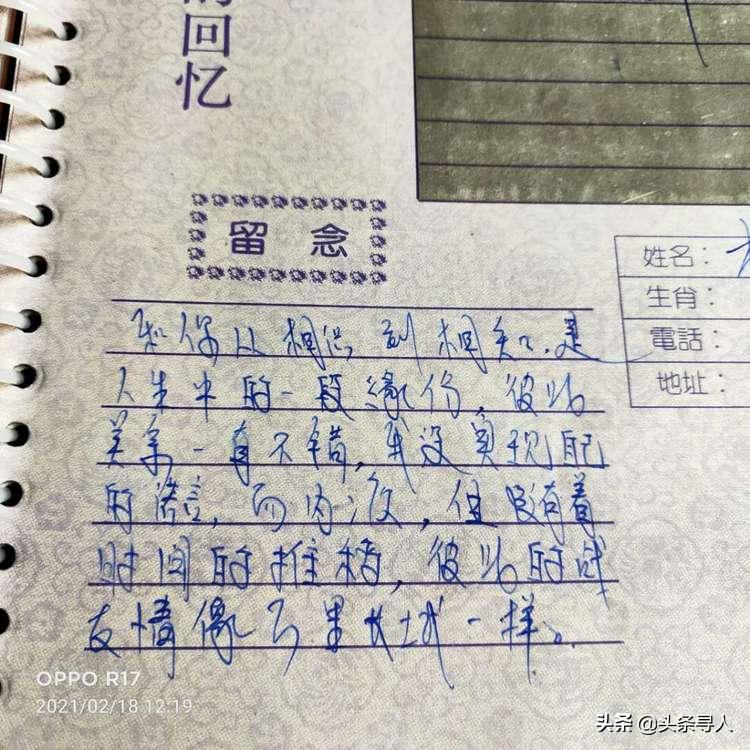 回忆
留念
和你从相识到相知，是
人生中的一段緣份，彼此
关系一直不错，我没實现
的諾言，而内疚，但随着
时间的推移，彼此的战
友情像万里长城一样。
姓名：
生肖：
電話：
地址：
OPPO R17
2021/02/18 12:19
头条 @头条寻人